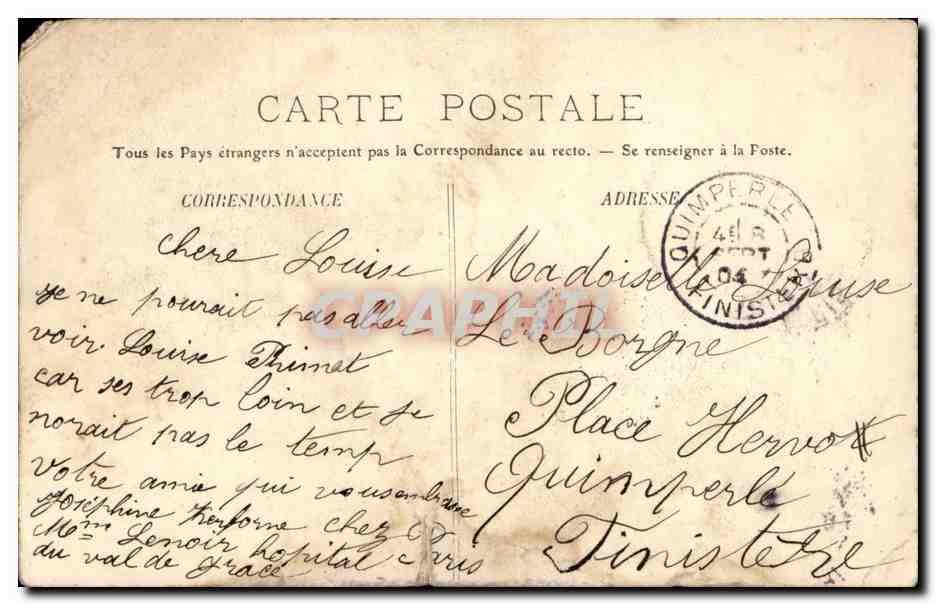 CARTE POSTALE
Tous les Pays étrangers n'acceptent pas la Correspondance au recto. — Se renseigner à la Poste.
CORRESPONDANCE
chere Louise
je ne pourait pas aller
voir Louise Primat
car ses trop loin et je
norait pas le temp
votre amie qui vous embrasse
Joséphine Kerforne chez
Mme Lenoir hopital Paris
du val de grace
ADRESSE
Madoiselle Louise
Le Borgne
Place Hervo
Quimperlé
Finistere
QUIMPERLE
4E 8
SEPT
04
FINISTERE
CPAPHIL